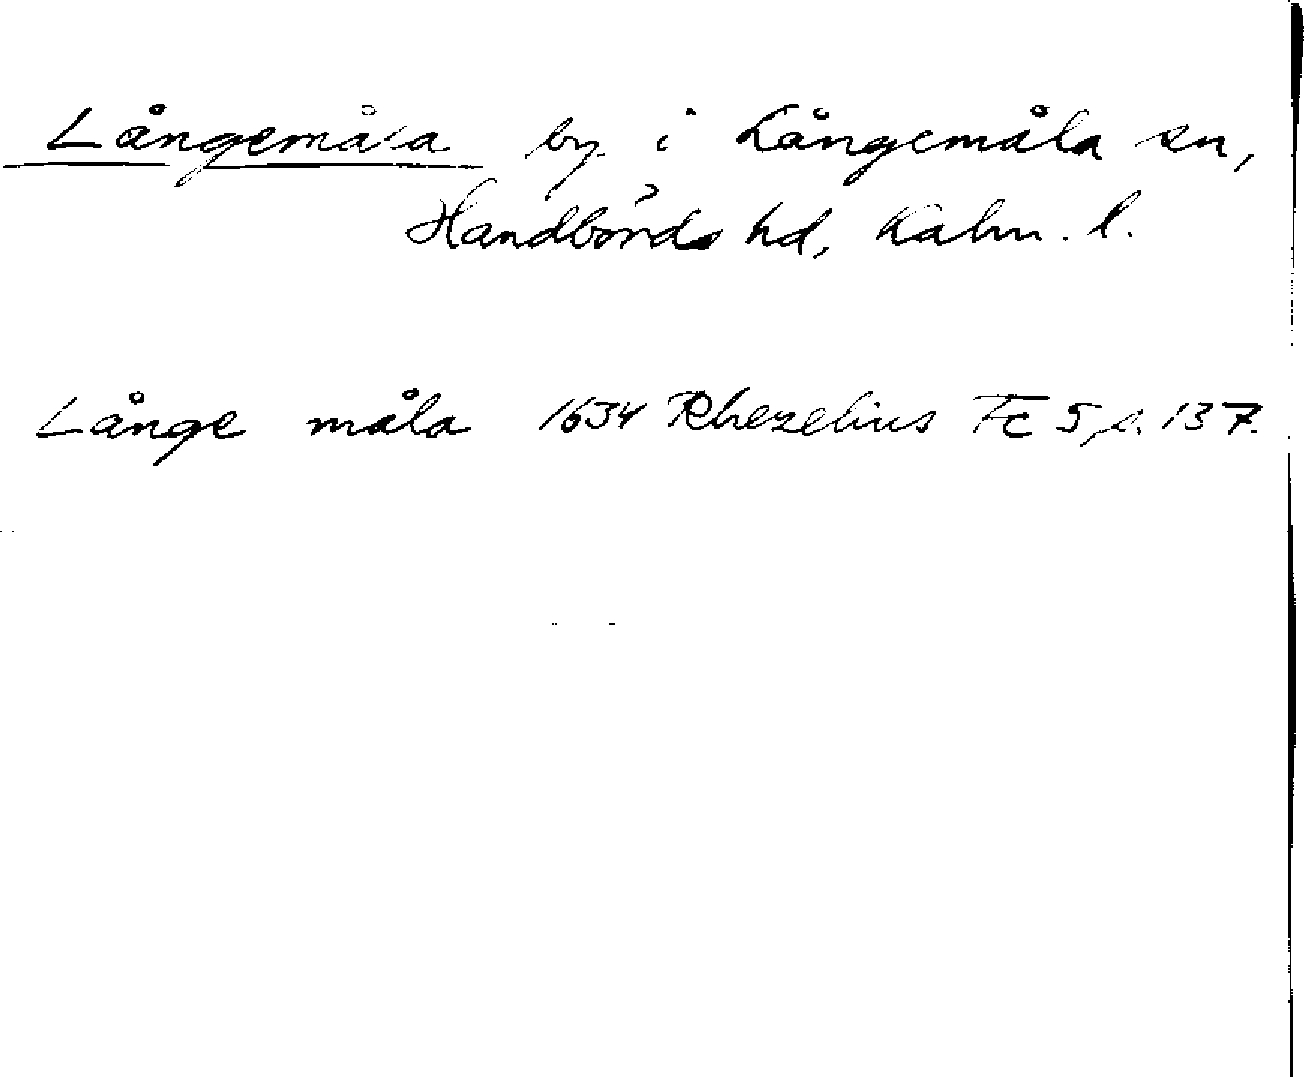 Långemåla by. i Långemåla sn,
Handbörds hd, Kalm. l.
Långe måla 1634 Rhezelius Fc 5, s. 137.